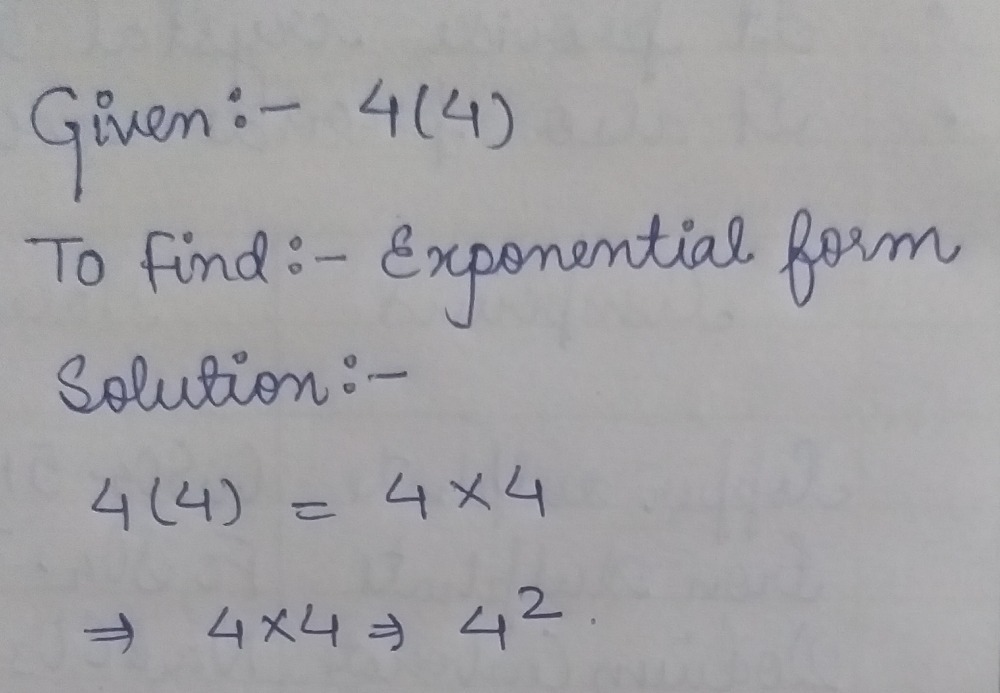 Given:- 4(4)
To find:- Exponential form
Solution:-
4(4) = 4×4
⇒ 4×4 ⇒ 4².